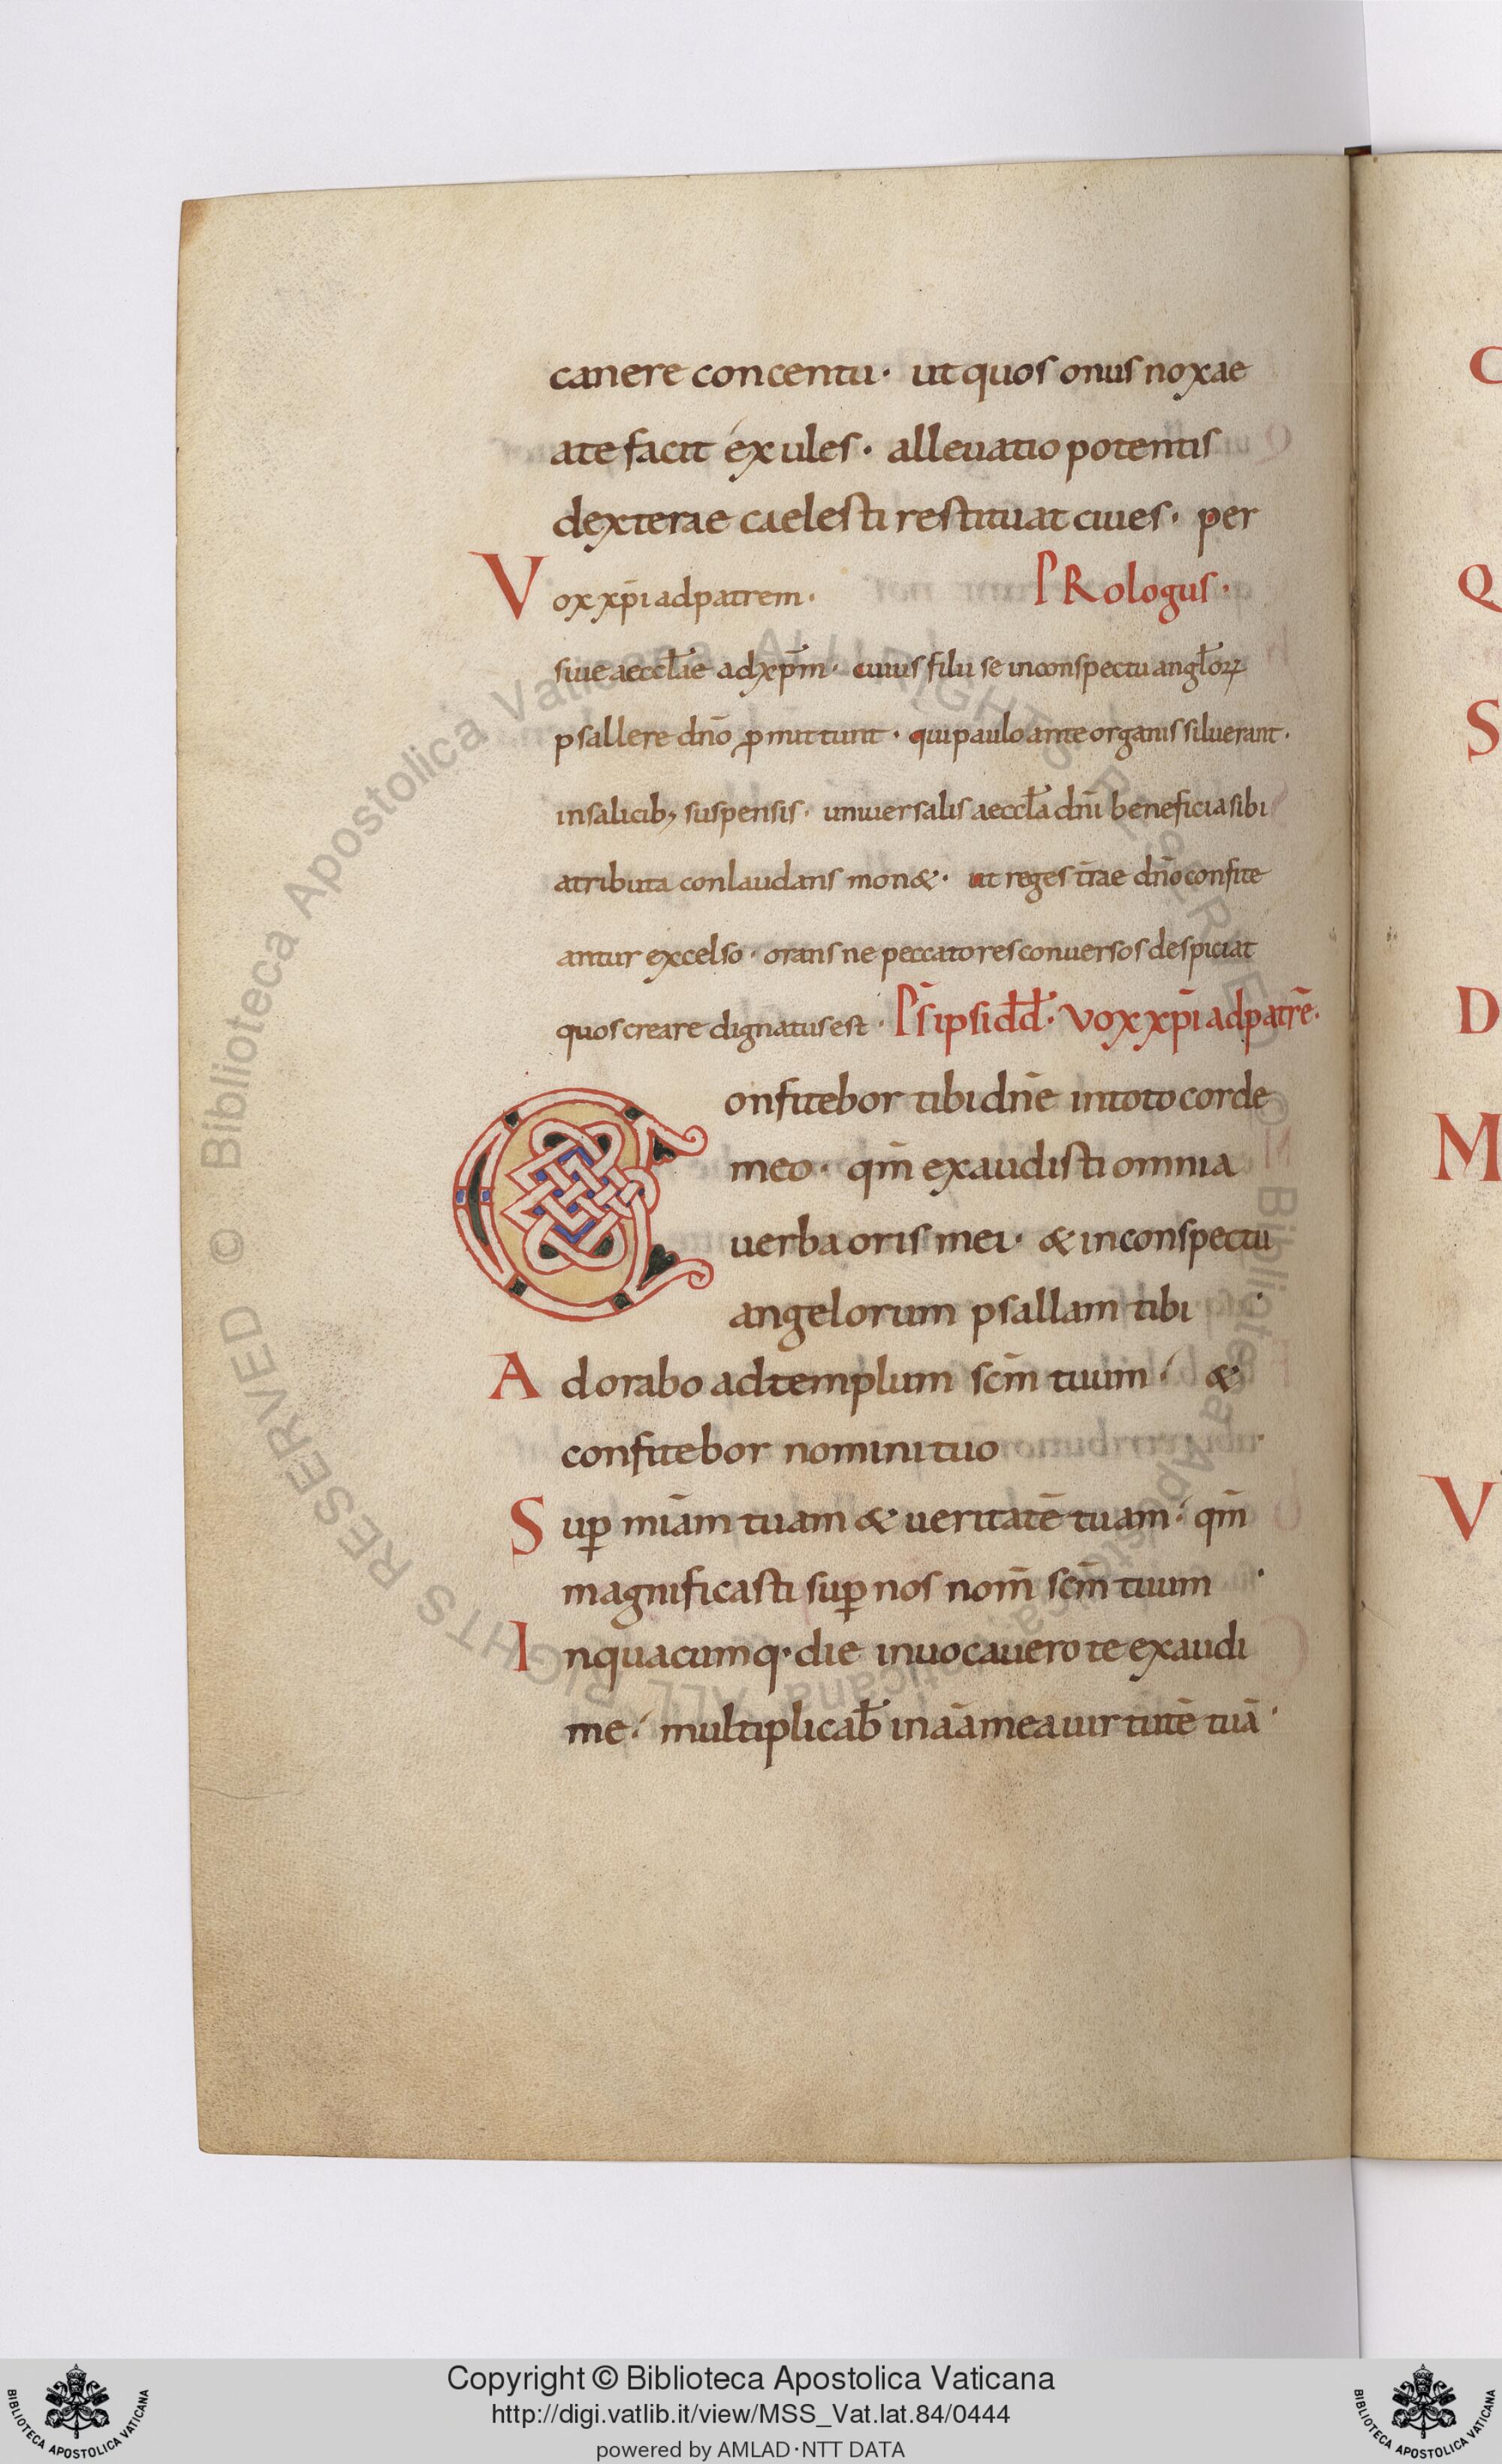 canere concentu· ut quos onus noxae
ate facit exules· alleuatio potentis
dexterae caelesti restituat ciues· per
Vox xp̄i ad patrem· PRologus·
siue aeccl̄ae ad xp̄m· cuius filii se in conspectu angl̄oꝝ
psallere dn̄o ꝓmittunt· qui paulo ante organis siluerant·
in salicib; suspensis· uniuersalis aeccl̄a dn̄i beneficia sibi
atributa conlaudans mon&· ut reges t̄rae dn̄o confite
antur excelso· orans ne peccatores conuersos despiciat
quos creare dignatus est· Ps̄ ipsi dd̄· vox xp̄i ad patrē·
Confitebor tibi dn̄e in toto corde
meo· qm̄ exaudisti omnia
uerba oris mei· & in conspectu
angelorum psallam tibi·
Adorabo ad templum scm̄ tuum· &
confitebor nomini tuo
Suꝑ miām tuam & ueritatē tuam· qm̄
magnificasti suꝑ nos nom̄ scm̄ tuum·
In quacumq· die inuocauero te exaudi
me· multiplicab̄ in aā mea uirtutē tuā·
C
Q
S
D
M
V
© Biblioteca Apostolica Vaticana ALL RIGHTS RESERVED © Biblioteca Apostolica Vaticana ALL RIGHTS RESERVED
Copyright © Biblioteca Apostolica Vaticana
http://digi.vatlib.it/view/MSS_Vat.lat.84/0444
powered by AMLAD·NTT DATA
BIBLIOTECA APOSTOLICA VATICANA
BIBLIOTECA APOSTOLICA VATICANA